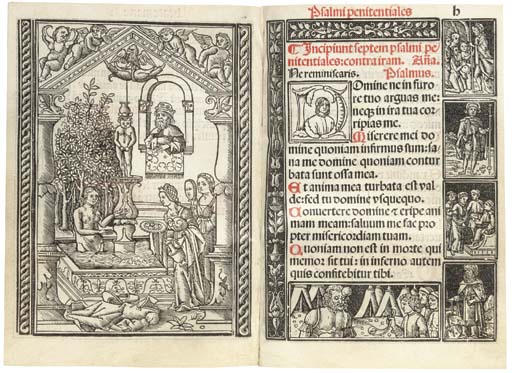 Psalmi penitentiales
b
Incipiunt septem psalmi pe
nitentiales: contra iram. Aña.
Ne reminiscaris. Psalmus.
Domine ne in furo
re tuo arguas me:
neqꝫ in ira tua cor
ripias me.
Miserere mei do
mine quoniam infirmus sum: sa
na me domine quoniam contur
bata sunt ossa mea.
Et anima mea turbata est val
de: sed tu domine vsquequo.
Convertere domine ⁊ eripe ani
mam meam: saluum me fac pro
pter misericordiam tuam.
Quoniam non est in morte qui
memor sit tui: in inferno autem
quis confitebitur tibi.